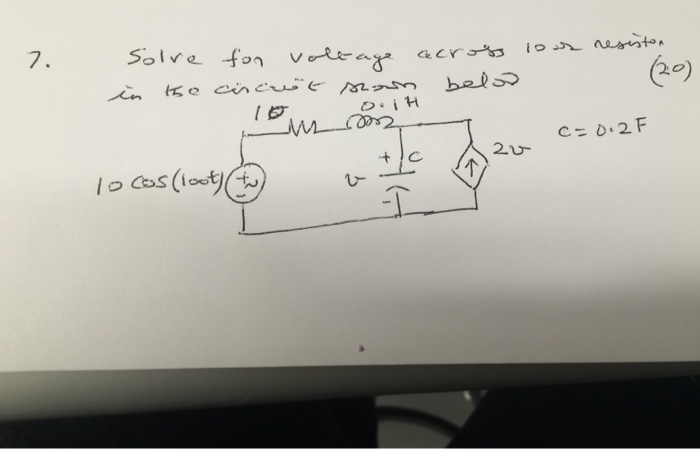 7. Solve for voltage across 10 Ω resistor
in the circuit shown below (20)
10 0.1H
10 cos(100t) + ~ - + v - C 2v C = 0.2F